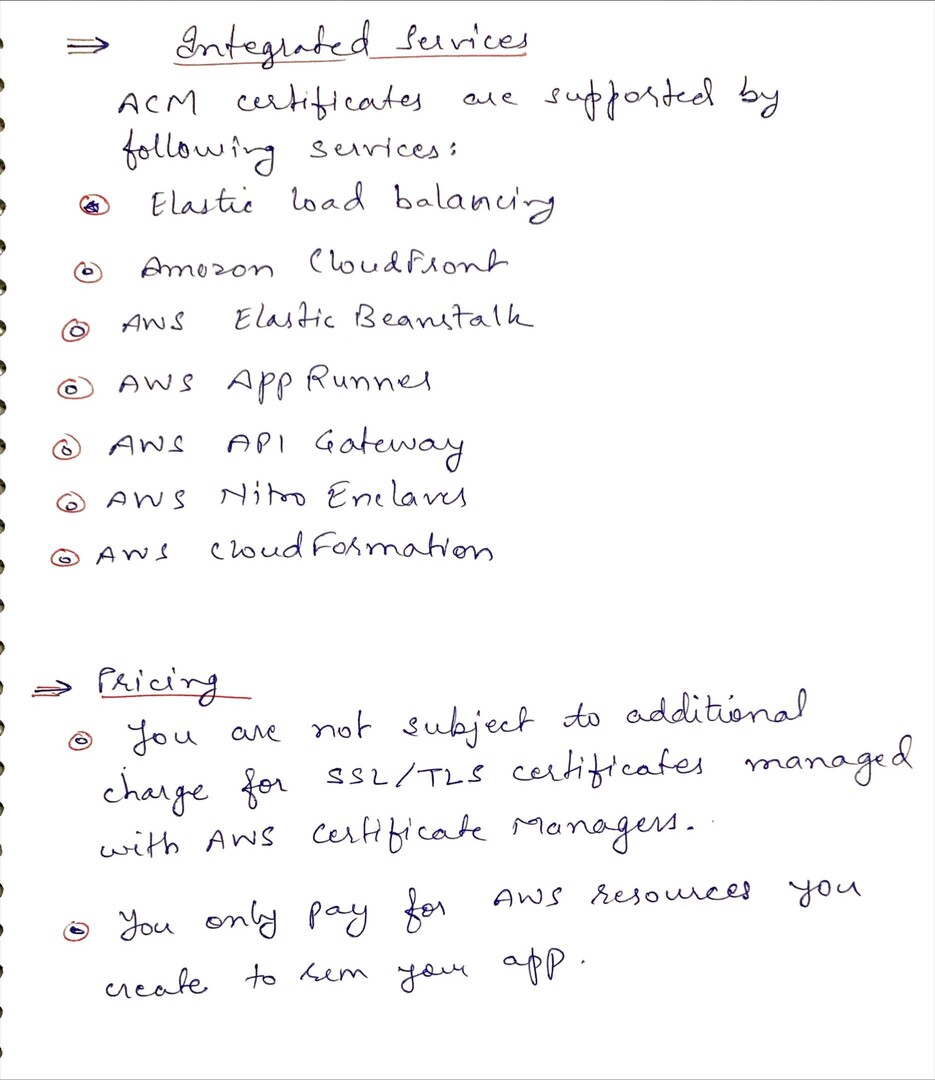 ⇒ Integrated Services
ACM certificates are supported by
following services:
Elastic load balancing
Amazon CloudFront
AWS Elastic Beanstalk
AWS App Runner
AWS API Gateway
AWS Nitro Enclaves
AWS CloudFormation
⇒ Pricing
You are not subject to additional
charge for SSL/TLS certificates managed
with AWS Certificate Managers.
You only pay for AWS resources you
create to run your app.